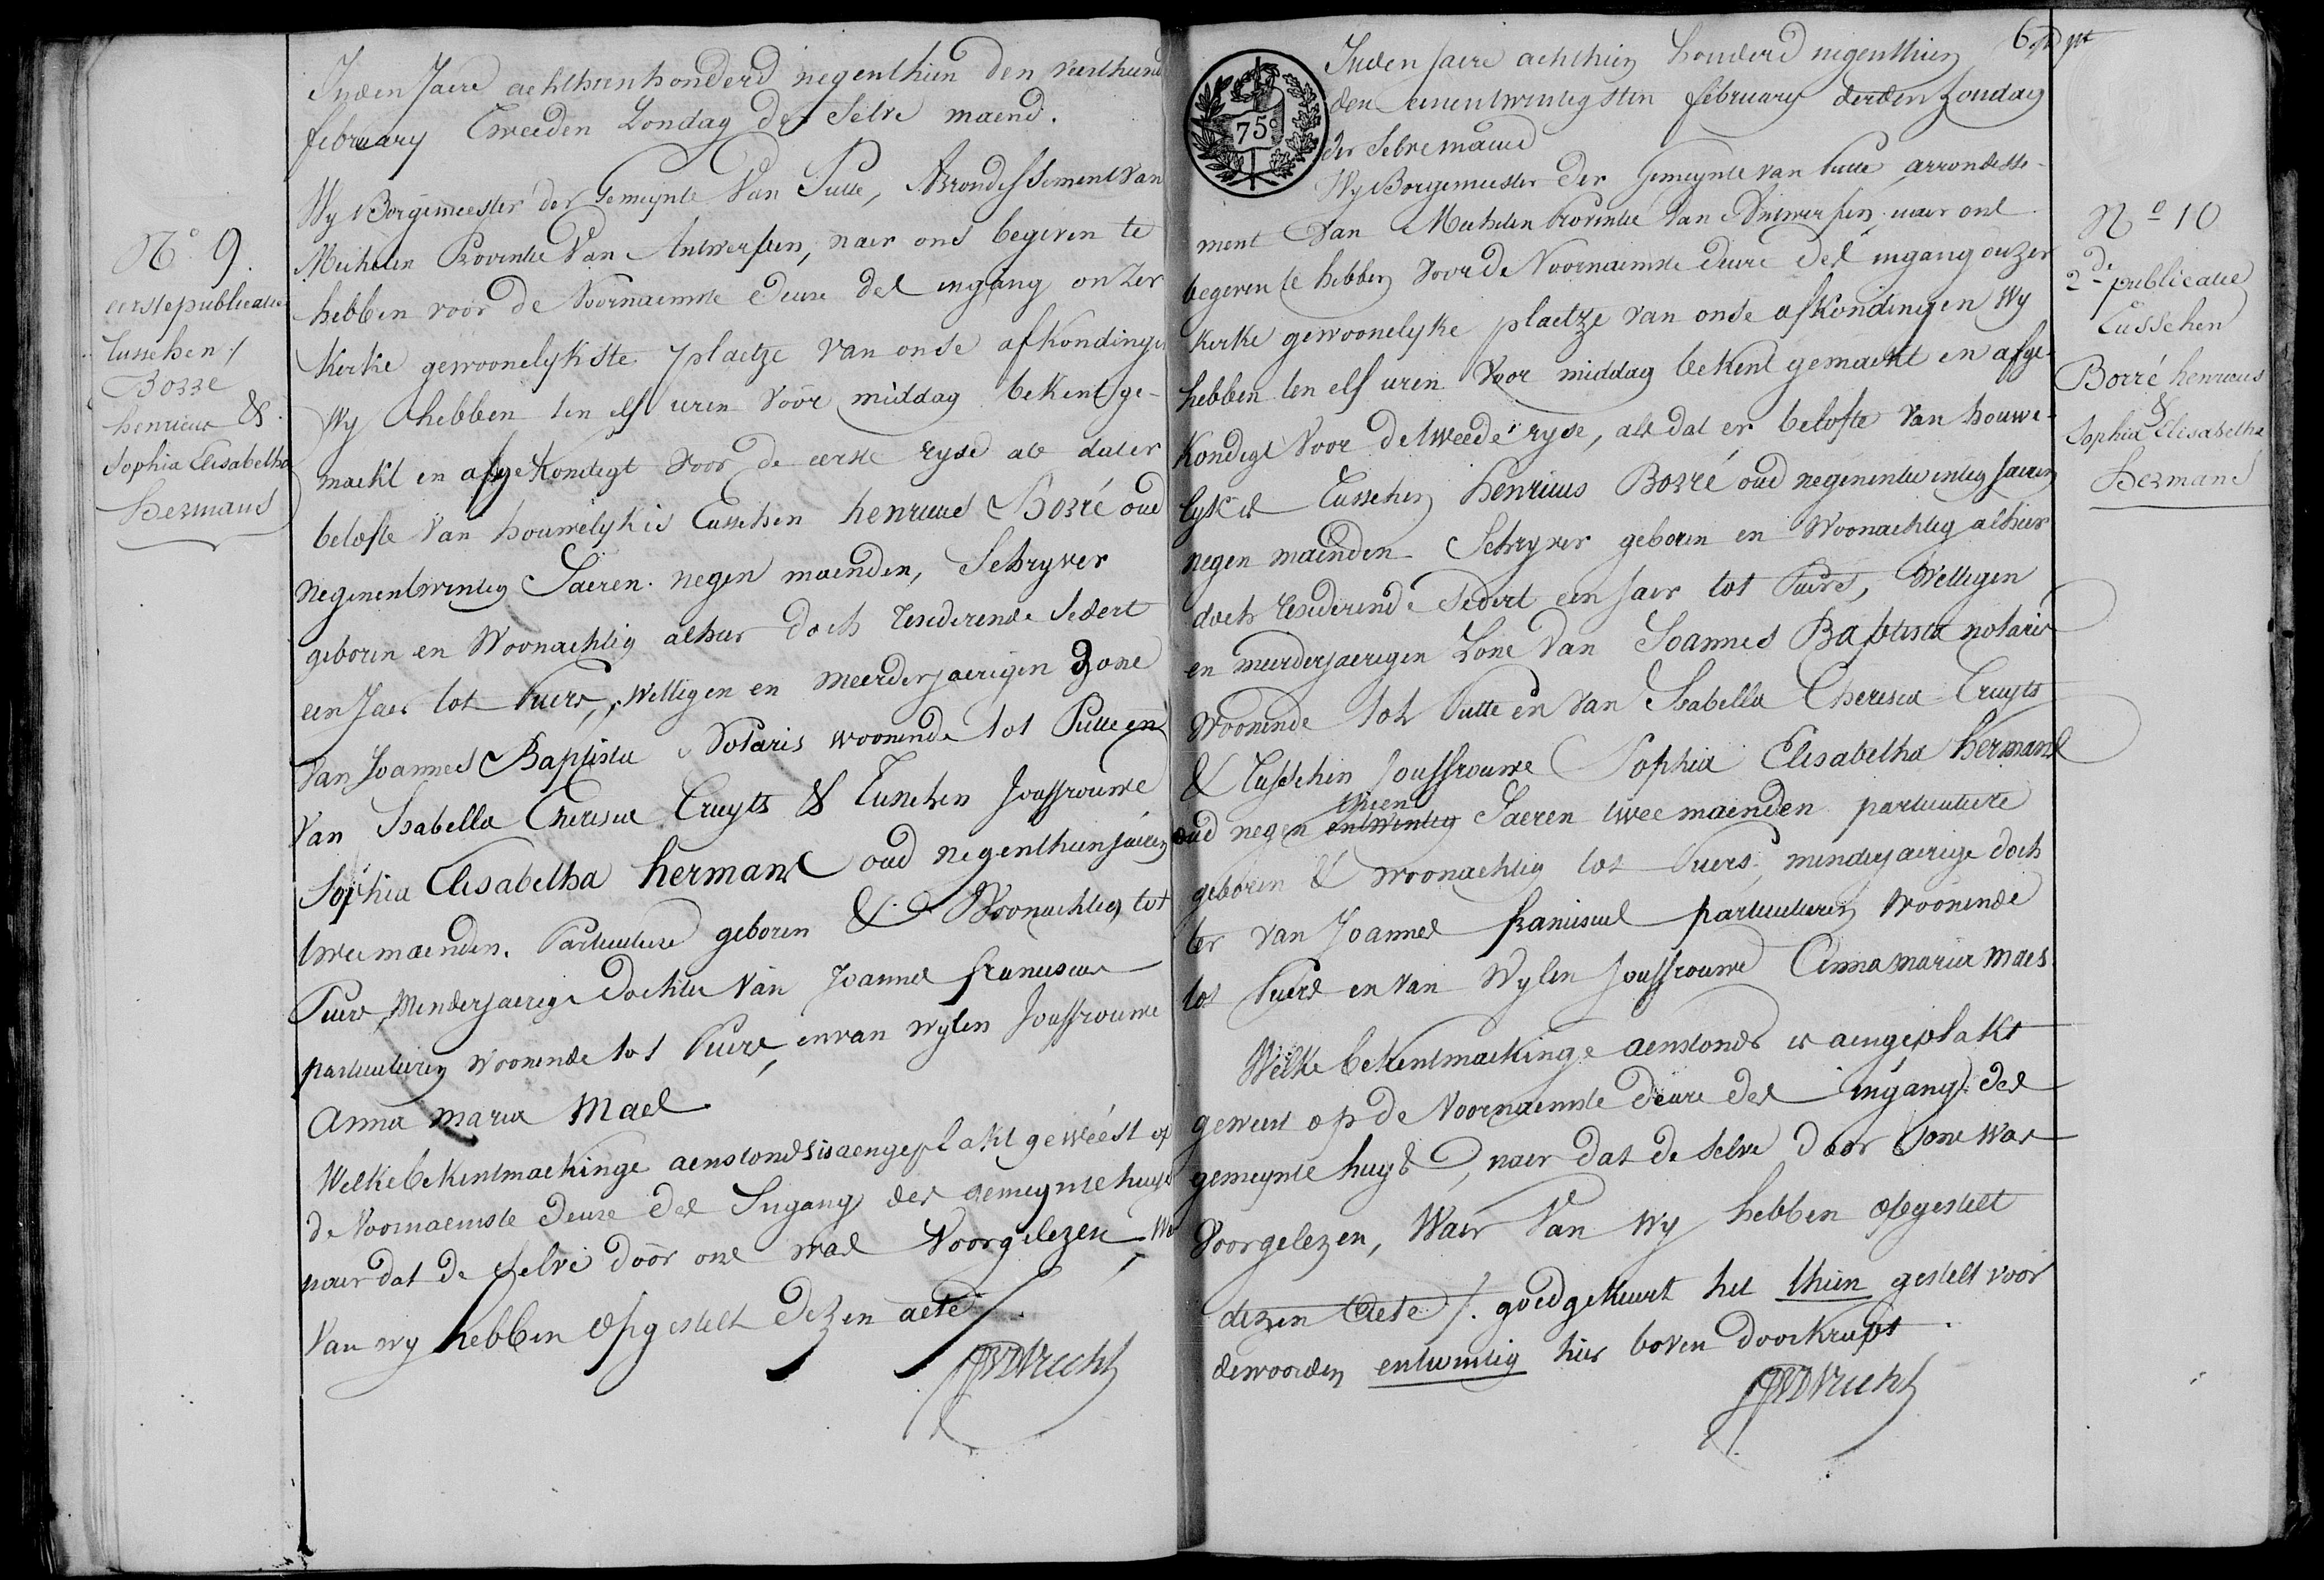 N.° 9.
eerste publicatie
tusschen /
Borre
henricus &
Sophia Elisabetha
Hermans
In den Jaere achthienhonderd negenthien den veerthiend
february tweeden Zondag der Selve maend.
Wy Borgemeester der Gemeynte Van Putte, Arrondissement Van
Mechelen Provintie Van Antwerpen, naer ons begeven te
hebben voor de Voornaemste deure des ingang onzer
Kerke gewoonelykste plaetze van onse afkondinge
Wy hebben ten elf uren voor middag bekent ge-
maekt en afgekondigt voor de eerste ryse als dat er
belofte van houwelyk is tusschen henricus Borré oud
negenentwintig Jaeren negen maenden, Schryver
geboren en Woonachtig alhier doch resederende sedert
een Jaer tot Puers, wettigen en meerderjaerigen Zone
Van Joannes Baptista Notaris woonende tot Putte en
Van Isabella Theresia Cruyts & tusschen Jouffrouwe
Sophia Elisabetha hermans oud negenthien jaeren
twee maenden. Particuliere geboren & Woonachtig tot
Puers, Minderjaerige dochter Van Joannes franciscus
particulieren woonende tot Puers, en van wylen Jouffrouwe
Anna Maria Maes
Welke bekentmaekinge aenstonds is aengeplakt geweest op
de Voornaemste deure des Ingang des gemeynte huyse
naer dat de selve door ons was Voorgelezen, Wa
Van wy hebben opgestelt dezen acte /.
75
In den Jaere achthien honderd negenthien
den eenentwintigsten february derden Zondag
der Selve maend
Wy Borgemeester der Gemeynte van Putte arrondisse-
ment Van Mechelen Provintie Van Antwerpen, naer ons
begeven te hebben voor de Voornaemste deure des ingang onzer
Kerke gewoonelyke plaetze van onse afkondingen Wy
hebben ten elf uren Voor middag bekent gemaekt en afge-
Kondigt Voor de tweede ryse, als dat er belofte Van houwe-
lyk is tusschen Henricus Borré oud negenentwintig Jaeren
negen maenden Schryver geboren en Woonachtig alhier
doch resederende sedert een Jaer tot Puers, Wettigen
en meerderjaerigen Zone Van Joannes Baptista notaris
woonende tot Putte en Van Isabella Theresia Cruyts
& tusschen Jouffrouwe Sophia Elisabetha Hermans
thien
oud negen entwintig Jaeren twee maenden particuliere
geboren & woonachtig tot Puers, minderjaerige doch
ter van Joannes franciscus particulieren Woonende
tot Puers en van Wylen Jouffrouwe Anna Maria Maes
Welke bekentmaekinge aenstonds is aengeplakt
geweest op de Voornaemste deure des ingang des
gemeynte huys, naer dat de selve door ons was
Voorgelezen, Waer Van wy hebben opgestelt
dezen Acte /. goedgekeurt het thien gestelt voor
de woorden entwintig hier boven doorkrapt.
N° 10
2de publicatie
tusschen
Borré henricus
&
Sophia Elisabetha
Hermans